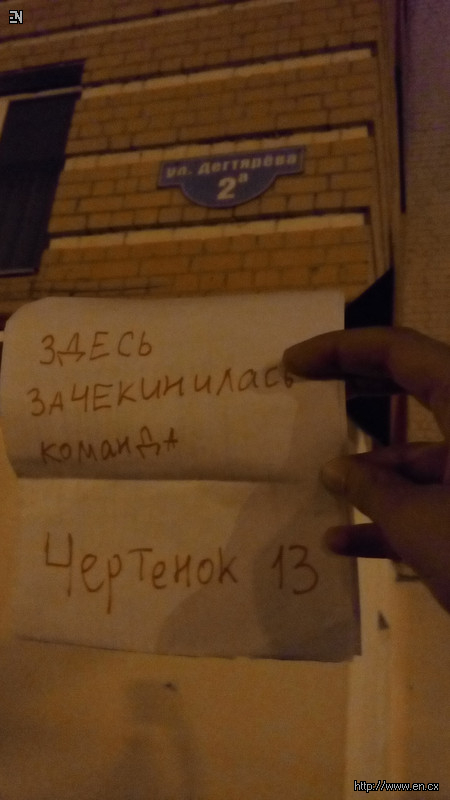 EN
ул. Дегтярёва
2а
ЗДЕСЬ
ЗАЧЕКИНИЛАСЬ
КОМАНДА
Чертенок 13
http://www.en.cx